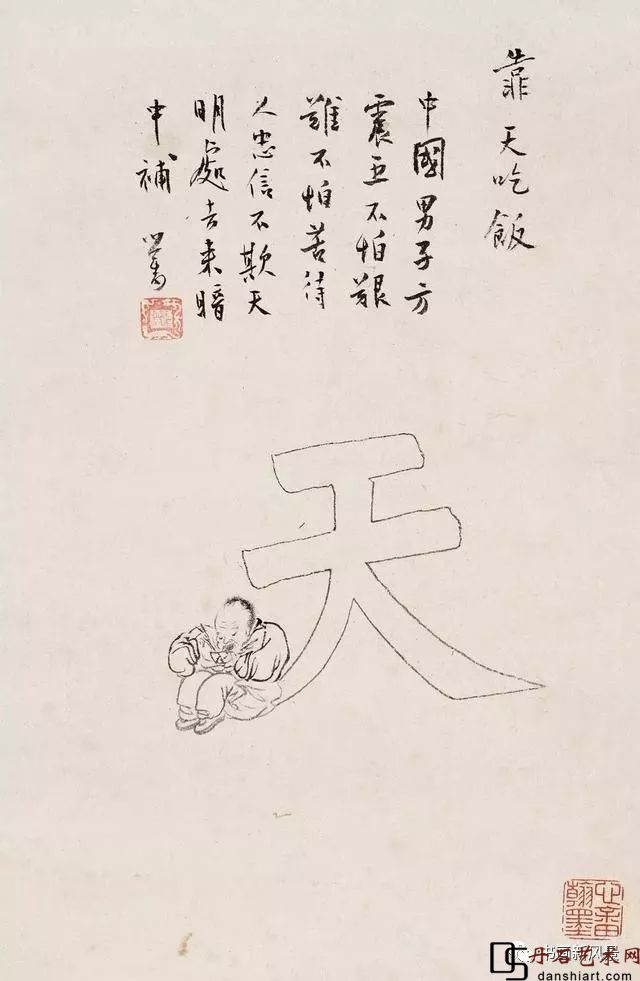 靠天吃飯
中國男子方
震亞不怕艱
難不怕苦待
人忠信不欺天
明處去来暗
中補
天
心畬
翰墨
书画新风景
丹石艺术网
danshiart.com